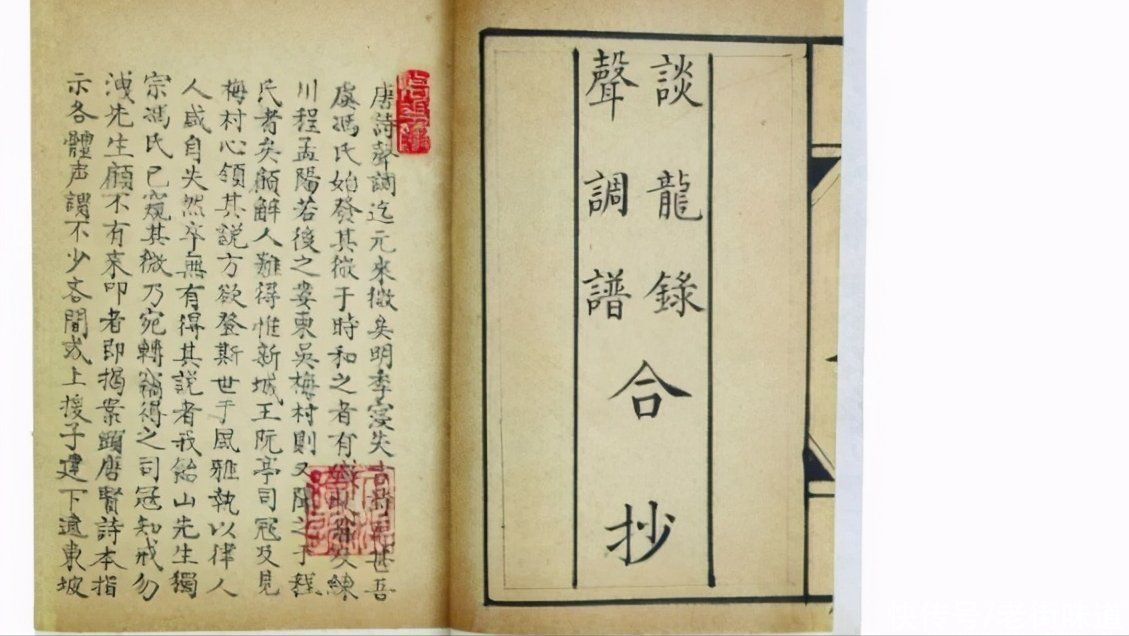 談龍錄
聲調譜
合抄
唐詩聲調迄元來微矣明季寖失吾
虞馮氏始發其微于時和之者有
川程孟陽若後之婁東吳梅村則又聞之于程
氏者矣顧解人難得惟新城王阮亭司寇及見
梅村心領其說方欲登斯世于風雅執以律人
人咸自失然卒無有得其說者我飴山先生獨
宗馮氏已窺其微乃宛轉竊得之司寇知戒勿
洩先生顧不有來叩者即揭案頭唐賢詩本指
示各體声謂不少吝間或上援子建下逮東坡